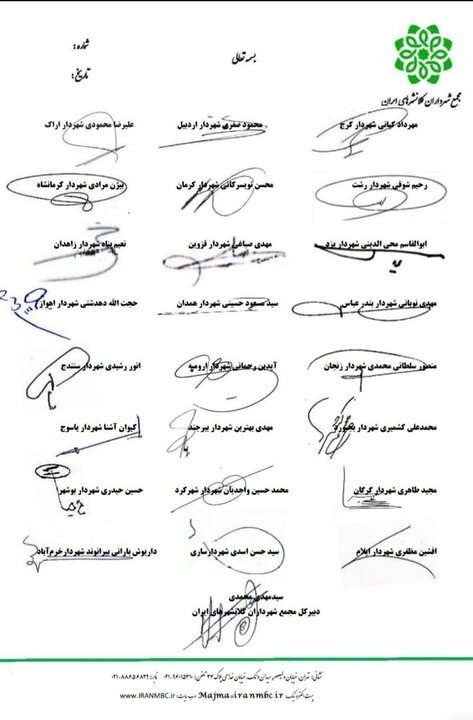 بسمه تعالی
شماره :
تاریخ :
مجمع شهرداران کلانشهرهای ایران
مهرداد کیانی شهردار کرج
محمود صفری شهردار اردبیل
علیرضا محمودی شهردار اراک
رحیم شوقی شهردار رشت
محسن تویسرکانی شهردار کرمان
بیژن مرادی شهردار کرمانشاه
ابوالقاسم محی الدینی شهردار یزد
مهدی صباغی شهردار قزوین
نعیم پناه شهردار زاهدان
مهدی نوبانی شهردار بندر عباس
سید مسعود حسینی شهردار همدان
حجت الله دهدشتی شهردار اهواز
منصور سلطانی محمدی شهردار زنجان
آیدین رحمانی شهردار ارومیه
انور رشیدی شهردار سنندج
محمدعلی کشمیری شهردار بجنورد
مهدی بهترین شهردار بیرجند
کیوان آشنا شهردار یاسوج
مجید طاهری شهردار گرگان
محمد حسین واحدیان شهردار شهرکرد
حسین حیدری شهردار بوشهر
افشین مظفری شهردار ایلام
سید حسن اسدی شهردارساری
داریوش بارانی بیرانوند شهردارخرم‌آباد
سیدمهدی محمدی
دبیرکل مجمع شهرداران کلانشهرهای ایران
نشانی: تهران، خیابان ولیعصر، میدان ونک، خیابان پلاک ۳۲ تلفن: ۹۶۰۱۵۳۱۰-۰۲۱ نمابر: ۸۸۶۵۶۸۴۲-۰۲۱
پست الکترونیک: Majma@iranmbc.ir وب سایت: WWW.IRANMBC.ir